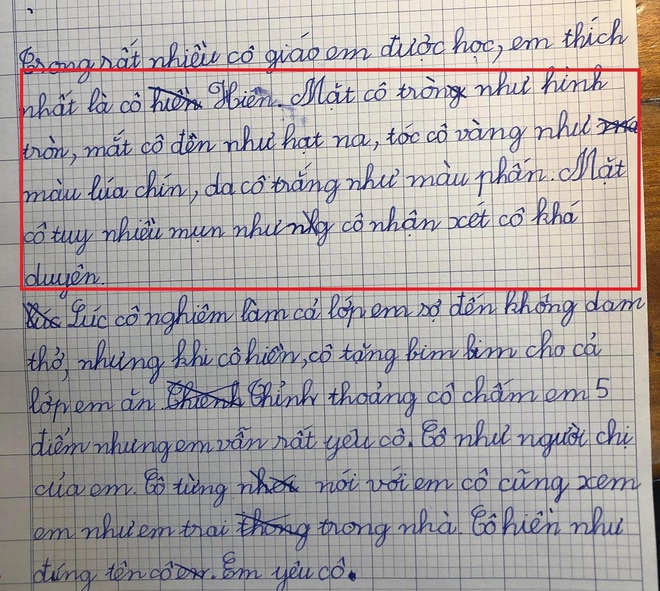 Trong rất nhiều cô giáo em được học, em thích
nhất là cô hiền Hiền. Mặt cô tròng như hình
tròn, mắt cô đên như hạt na, tóc cô vàng như
màu lúa chín, da cô trắng như màu phấn. Mặt
cô tuy nhiều mụn nhưng cô nhận xét cô khá
duyên.
Lúc cô nghiêm làm cả lớp em sợ đến không dam
thở, nhưng khi cô hiền, cô tặng bim bim cho cả
lớp em ăn. Thỉnh thoảng cô chấm em 5
điểm nhưng em vẫn rất yêu cô. Cô như người chị
của em. Cô từng nói với em cô cũng xem
em như em trai trong nhà. Cô hiền như
đúng tên cô. Em yêu cô.